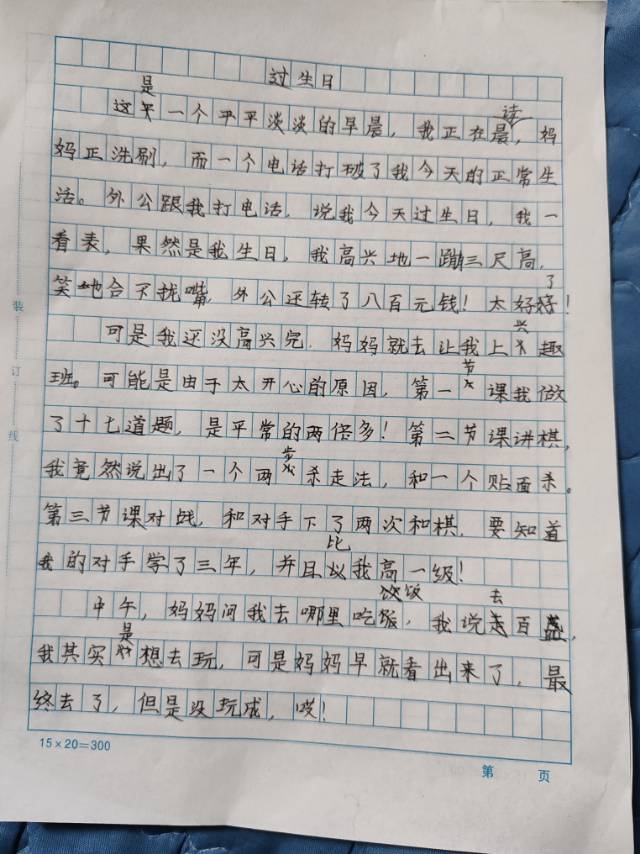 过生日
这是一个平平淡淡的早晨，我正在晨读，妈
妈正洗刷，而一个电话打破了我今天的正常生
活。外公跟我打电话，说我今天过生日，我一
看表，果然是我生日，我高兴地一蹦三尺高，
笑地合不拢嘴，外公还转了八百元钱！太好了！
可是我还没高兴完，妈妈就去让我上兴趣
班。可能是由于太开心的原因，第一节课我做
了十七道题，是平常的两倍多！第二节课讲棋，
我竟然说出了一个两步杀走法，和一个贴面杀。
第三节课对战，和对手下了两次和棋，要知道
我的对手学了三年，并且比我高一级！
中午，妈妈问我去哪里吃饭，我说去百盛，
我其实是想去玩，可是妈妈早就看出来了，最
终去了，但是没玩成，哎！
15×20=300
第 页
装
订
线